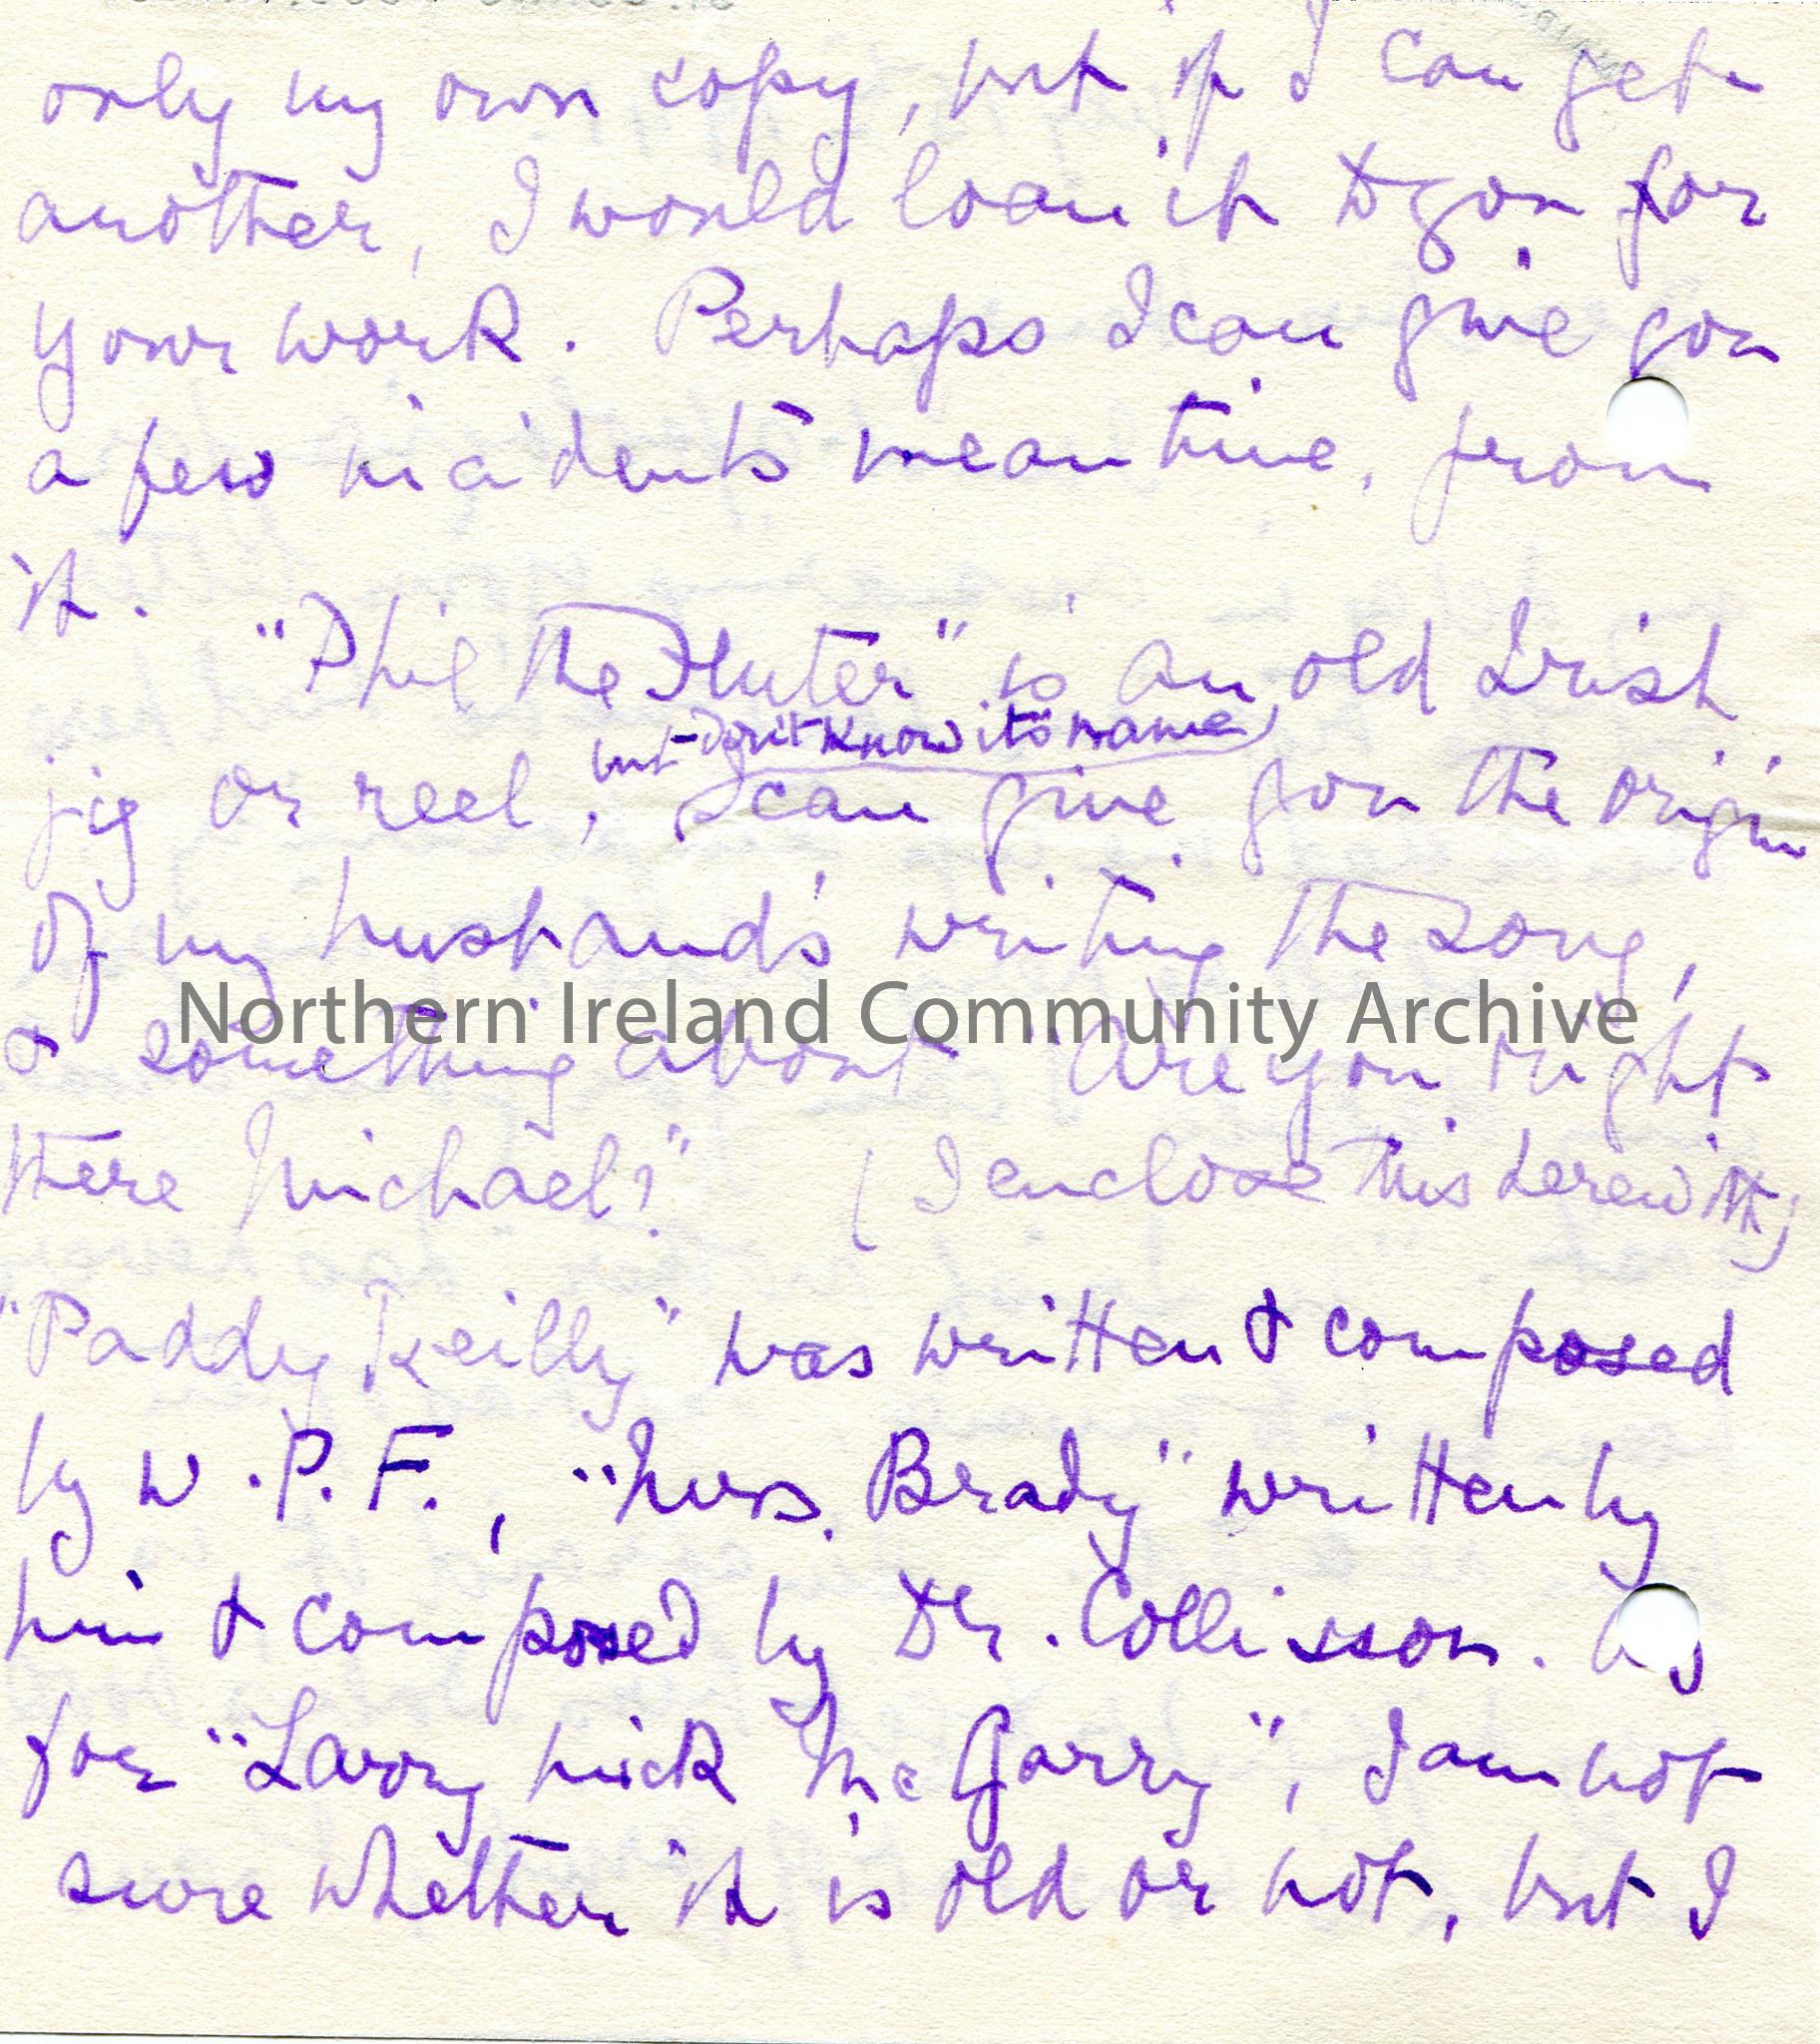 only my own copy, but if I can get
another, I would loan it to you for
your work. Perhaps I can give you
a few incidents meantime, from
it.
"Phil the Fluter" is an old Irish
but don't know its name
jig or reel, I can give you the origin
of my husband's writing the song,
& something about "Are you right
Northern Ireland Community Archive
there Michael?" (I enclose this herewith)
"Paddy Reilly" was written & composed
by W.P.F., "Mrs. Brady" written by
him & composed by Dr. Collisson. As
for "Larry Mick McGarry", I am not
sure whether it is old or not, but I